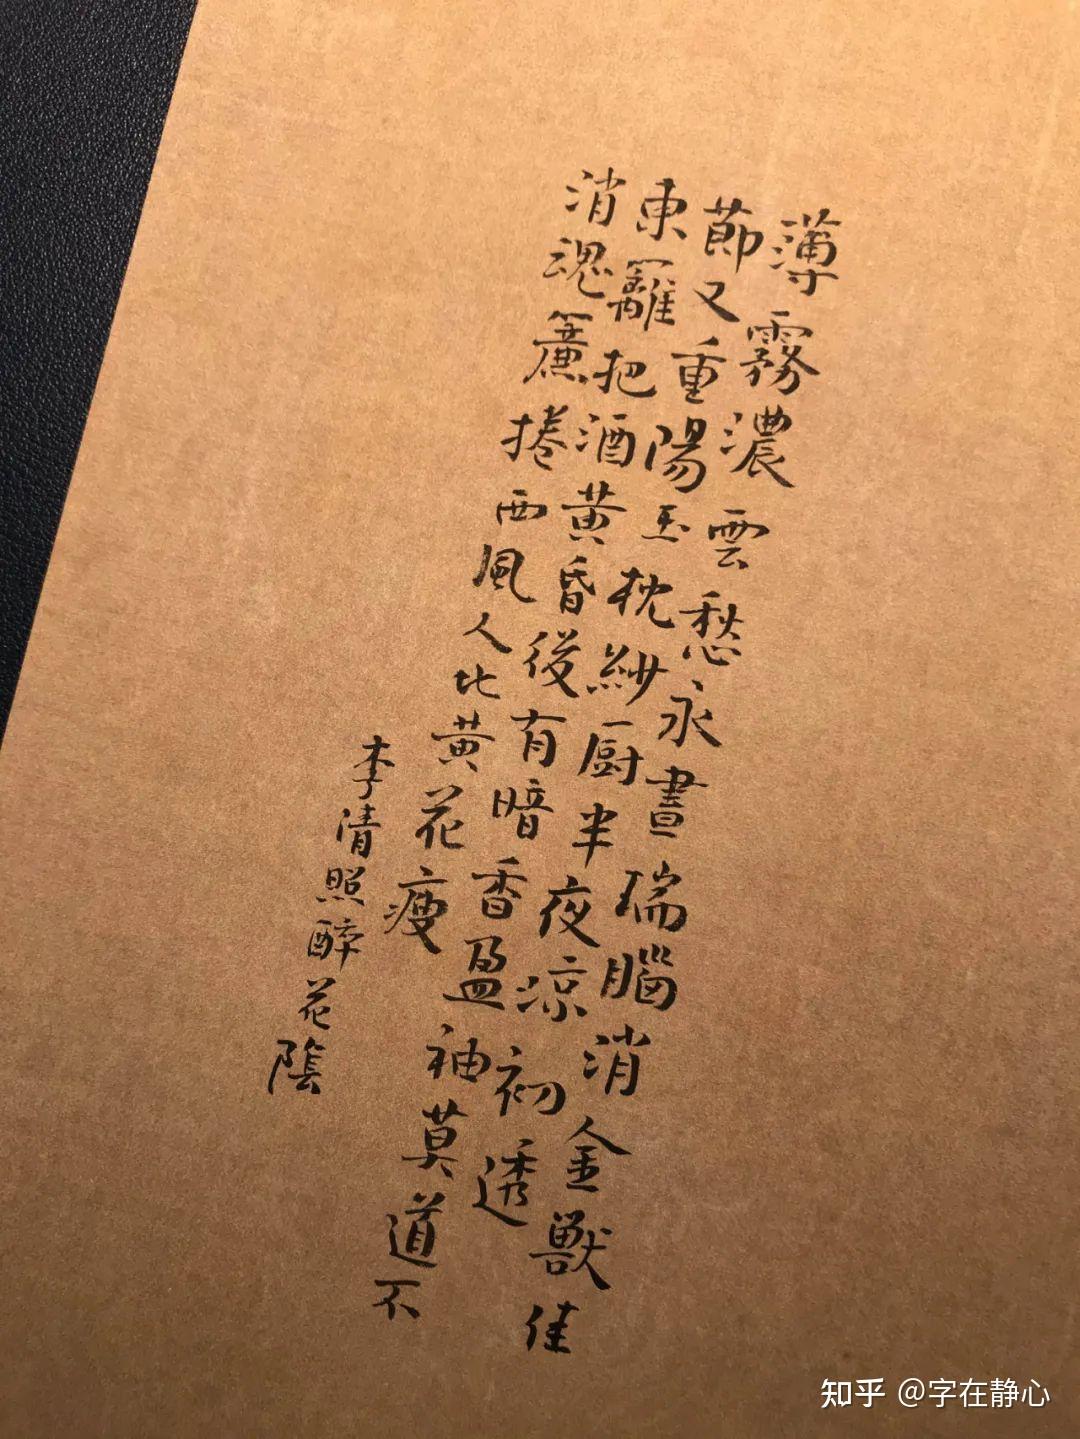 薄霧濃雲愁永晝瑞腦消金獸佳
節又重陽玉枕紗厨半夜涼初透
東籬把酒黄昏後有暗香盈袖莫道不
消魂簾捲西風人比黄花瘦
李清照醉花陰
知乎 @字在静心